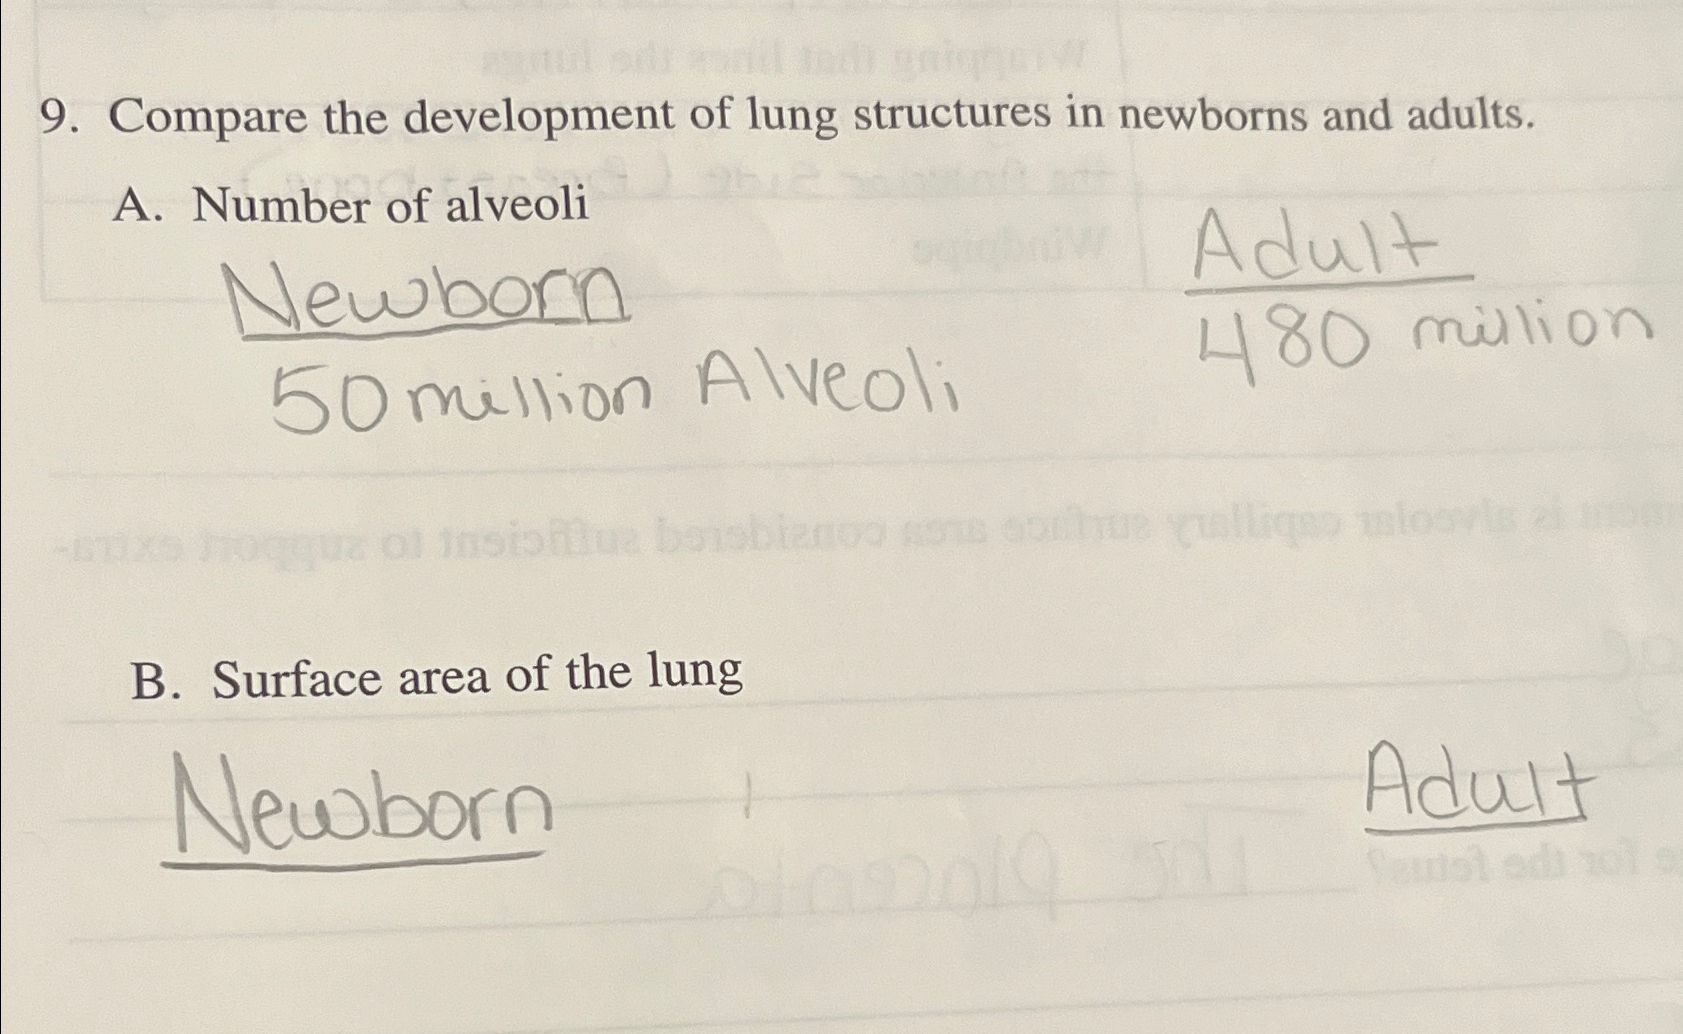 9. Compare the development of lung structures in newborns and adults.
A. Number of alveoli
Newborn
50 million Alveoli
Adult
480 million
B. Surface area of the lung
Newborn
Adult